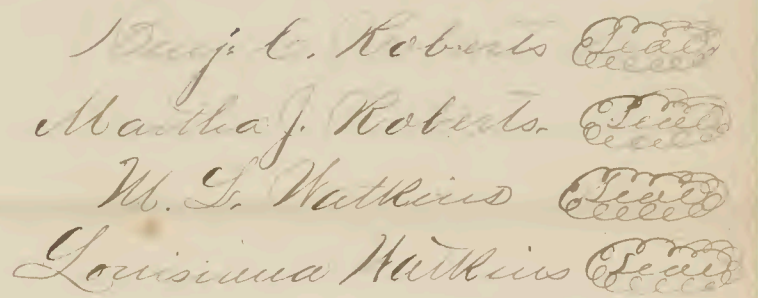 Benj. C. Roberts Seal
Martha J. Roberts. Seal
M. L. Watkins Seal
Louisiana Watkins Seal